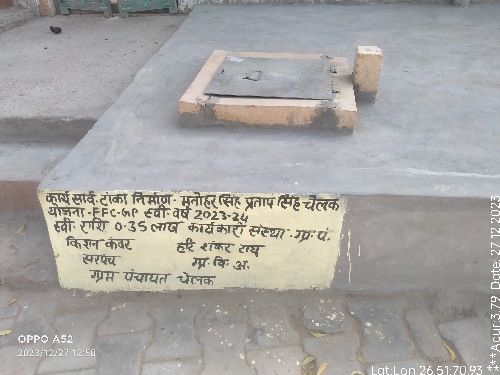 कार्य सार्व. टांका निर्माण - मनोहर सिंह प्रताप सिंह चेलक
योजना - FFC-GP स्वी. वर्ष 2023-24
स्वी राशि 0.35 लाख कार्यकारी संस्था - ग्रा. पं.
किशन कंवर हरि शंकर राघु
सरपंच ग्रा. वि. अ.
ग्राम पंचायत चेलक
OPPO A52
2023/12/27 12:50
Lat:Lon 26.51:70.93
*** Acur:3.79 Date: 27.12.2023